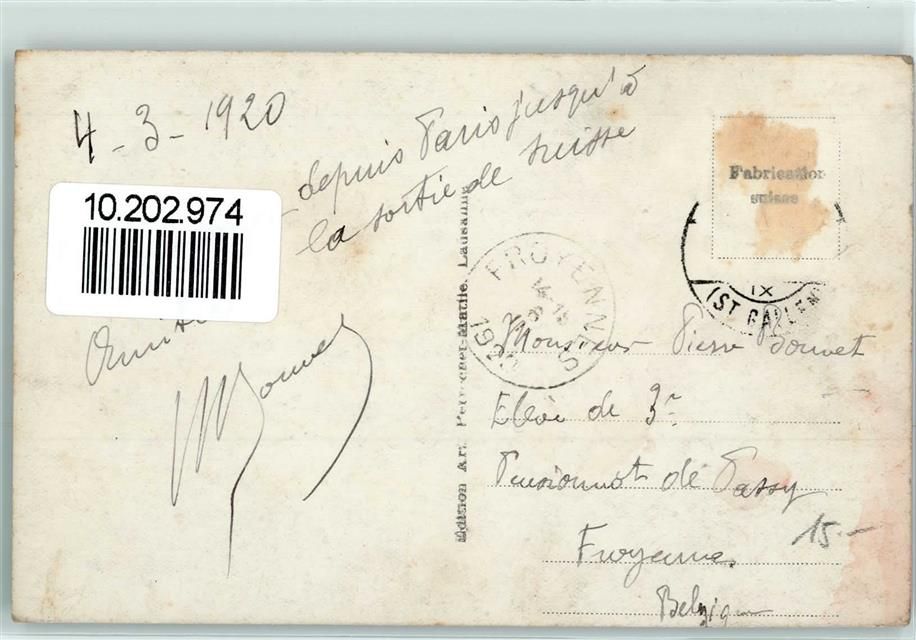 4-3-1920
depuis Paris jusqu'à
la sortie de suisse
10.202.974
Bouvet
Edition Art. Perrochet-Matile. Lausanne
Fabrication
suisse
IX
(ST GALLEN)
FROYENNES
1920
Monsieur Pierre Bouvet
Elève de 3e
Pensionnat de Passy
Froyennes
Belgique
15.-